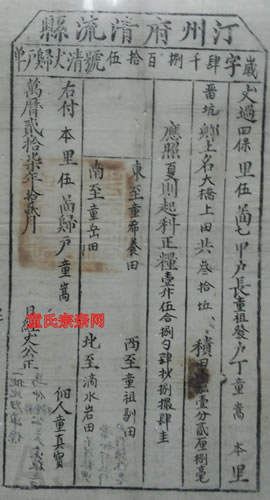 汀州府清流縣
嵗字肆千捌百拾伍號清丈歸戶單
丈過四保里伍啚七甲戶長童祖發戶丁童嵩本里
番坑鄉土名大橋上田共叁拾坵積壹分貳厘捌毫
應照夏則起科正糧壹升伍合捌勺肆抄捌撮肆圭
東至童希養田
西至童祖駟田
南至童岳田
北至滴水岩田
右付本里伍啚歸戶童嵩
佃人童真寶
萬曆貳拾柒年拾貳月日經丈公正
童氏宗亲网